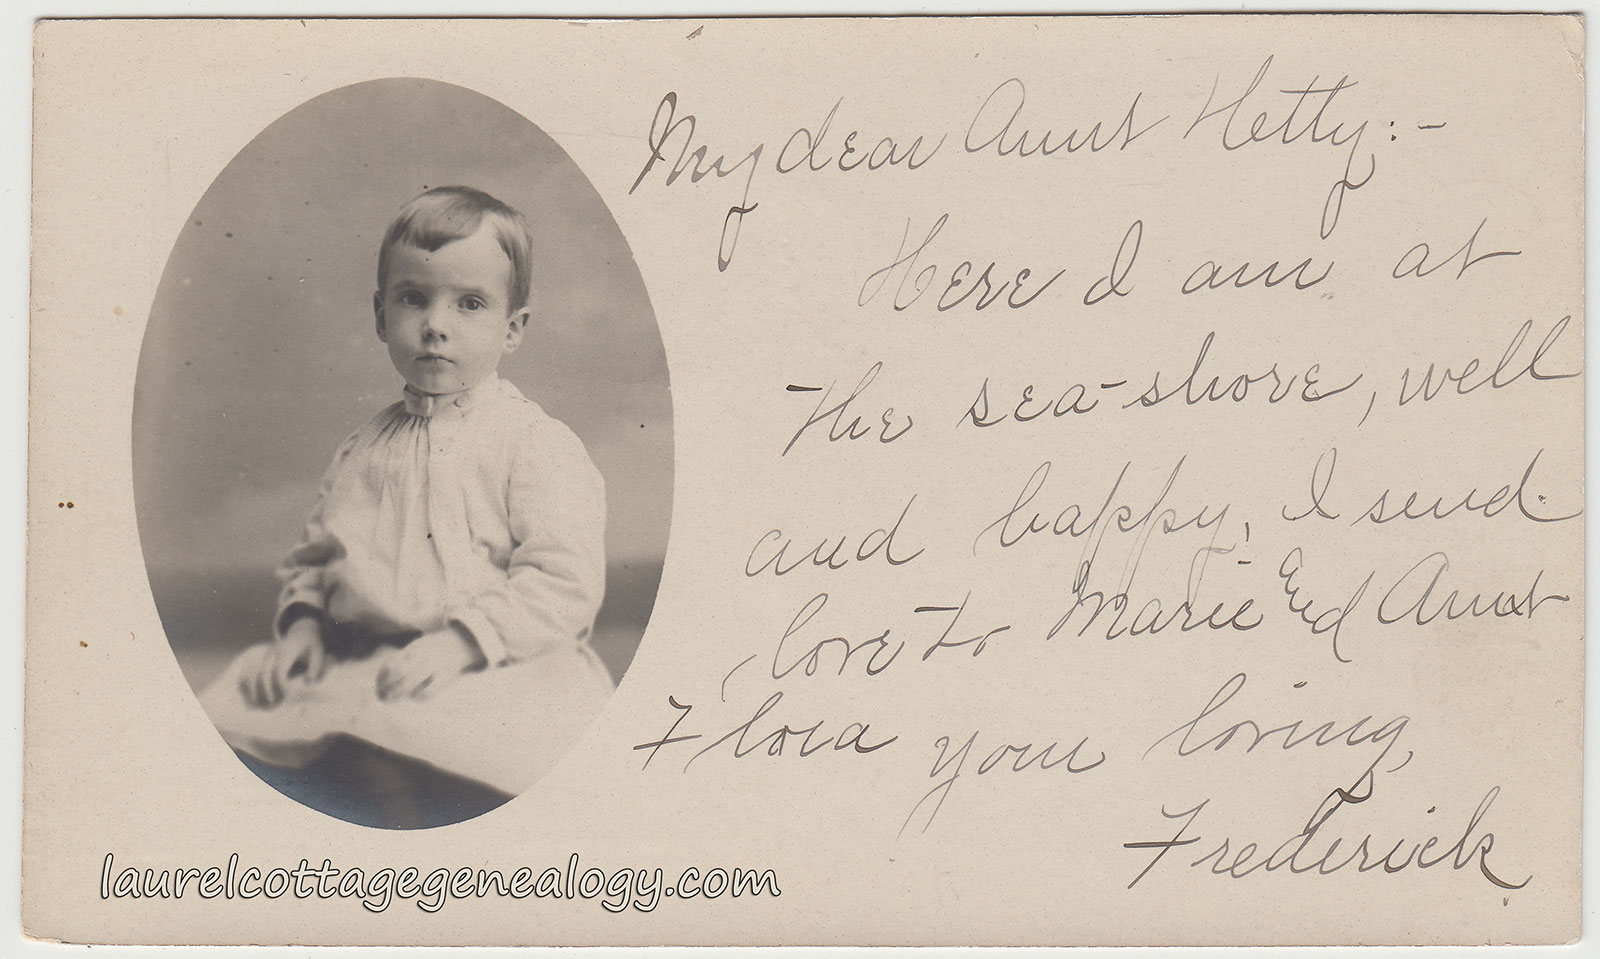 My dear Aunt Hetty:-
Here I am at
the sea-shore, well
and happy, I send
love to Marie End Aunt
Flora your loving,
Frederick
laurelcottagegenealogy.com